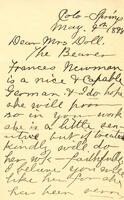 Colo- Springs
May, 4th 188
Dear Mrs Doll.
The Bearer
Frances Newman
is a nice & Capable
German & I do hope
she will prove
so in your work
she is a little sen
sitive but if located
kindly will do
her w'k — faithfully
I believe you will
like her for she
has been sorry